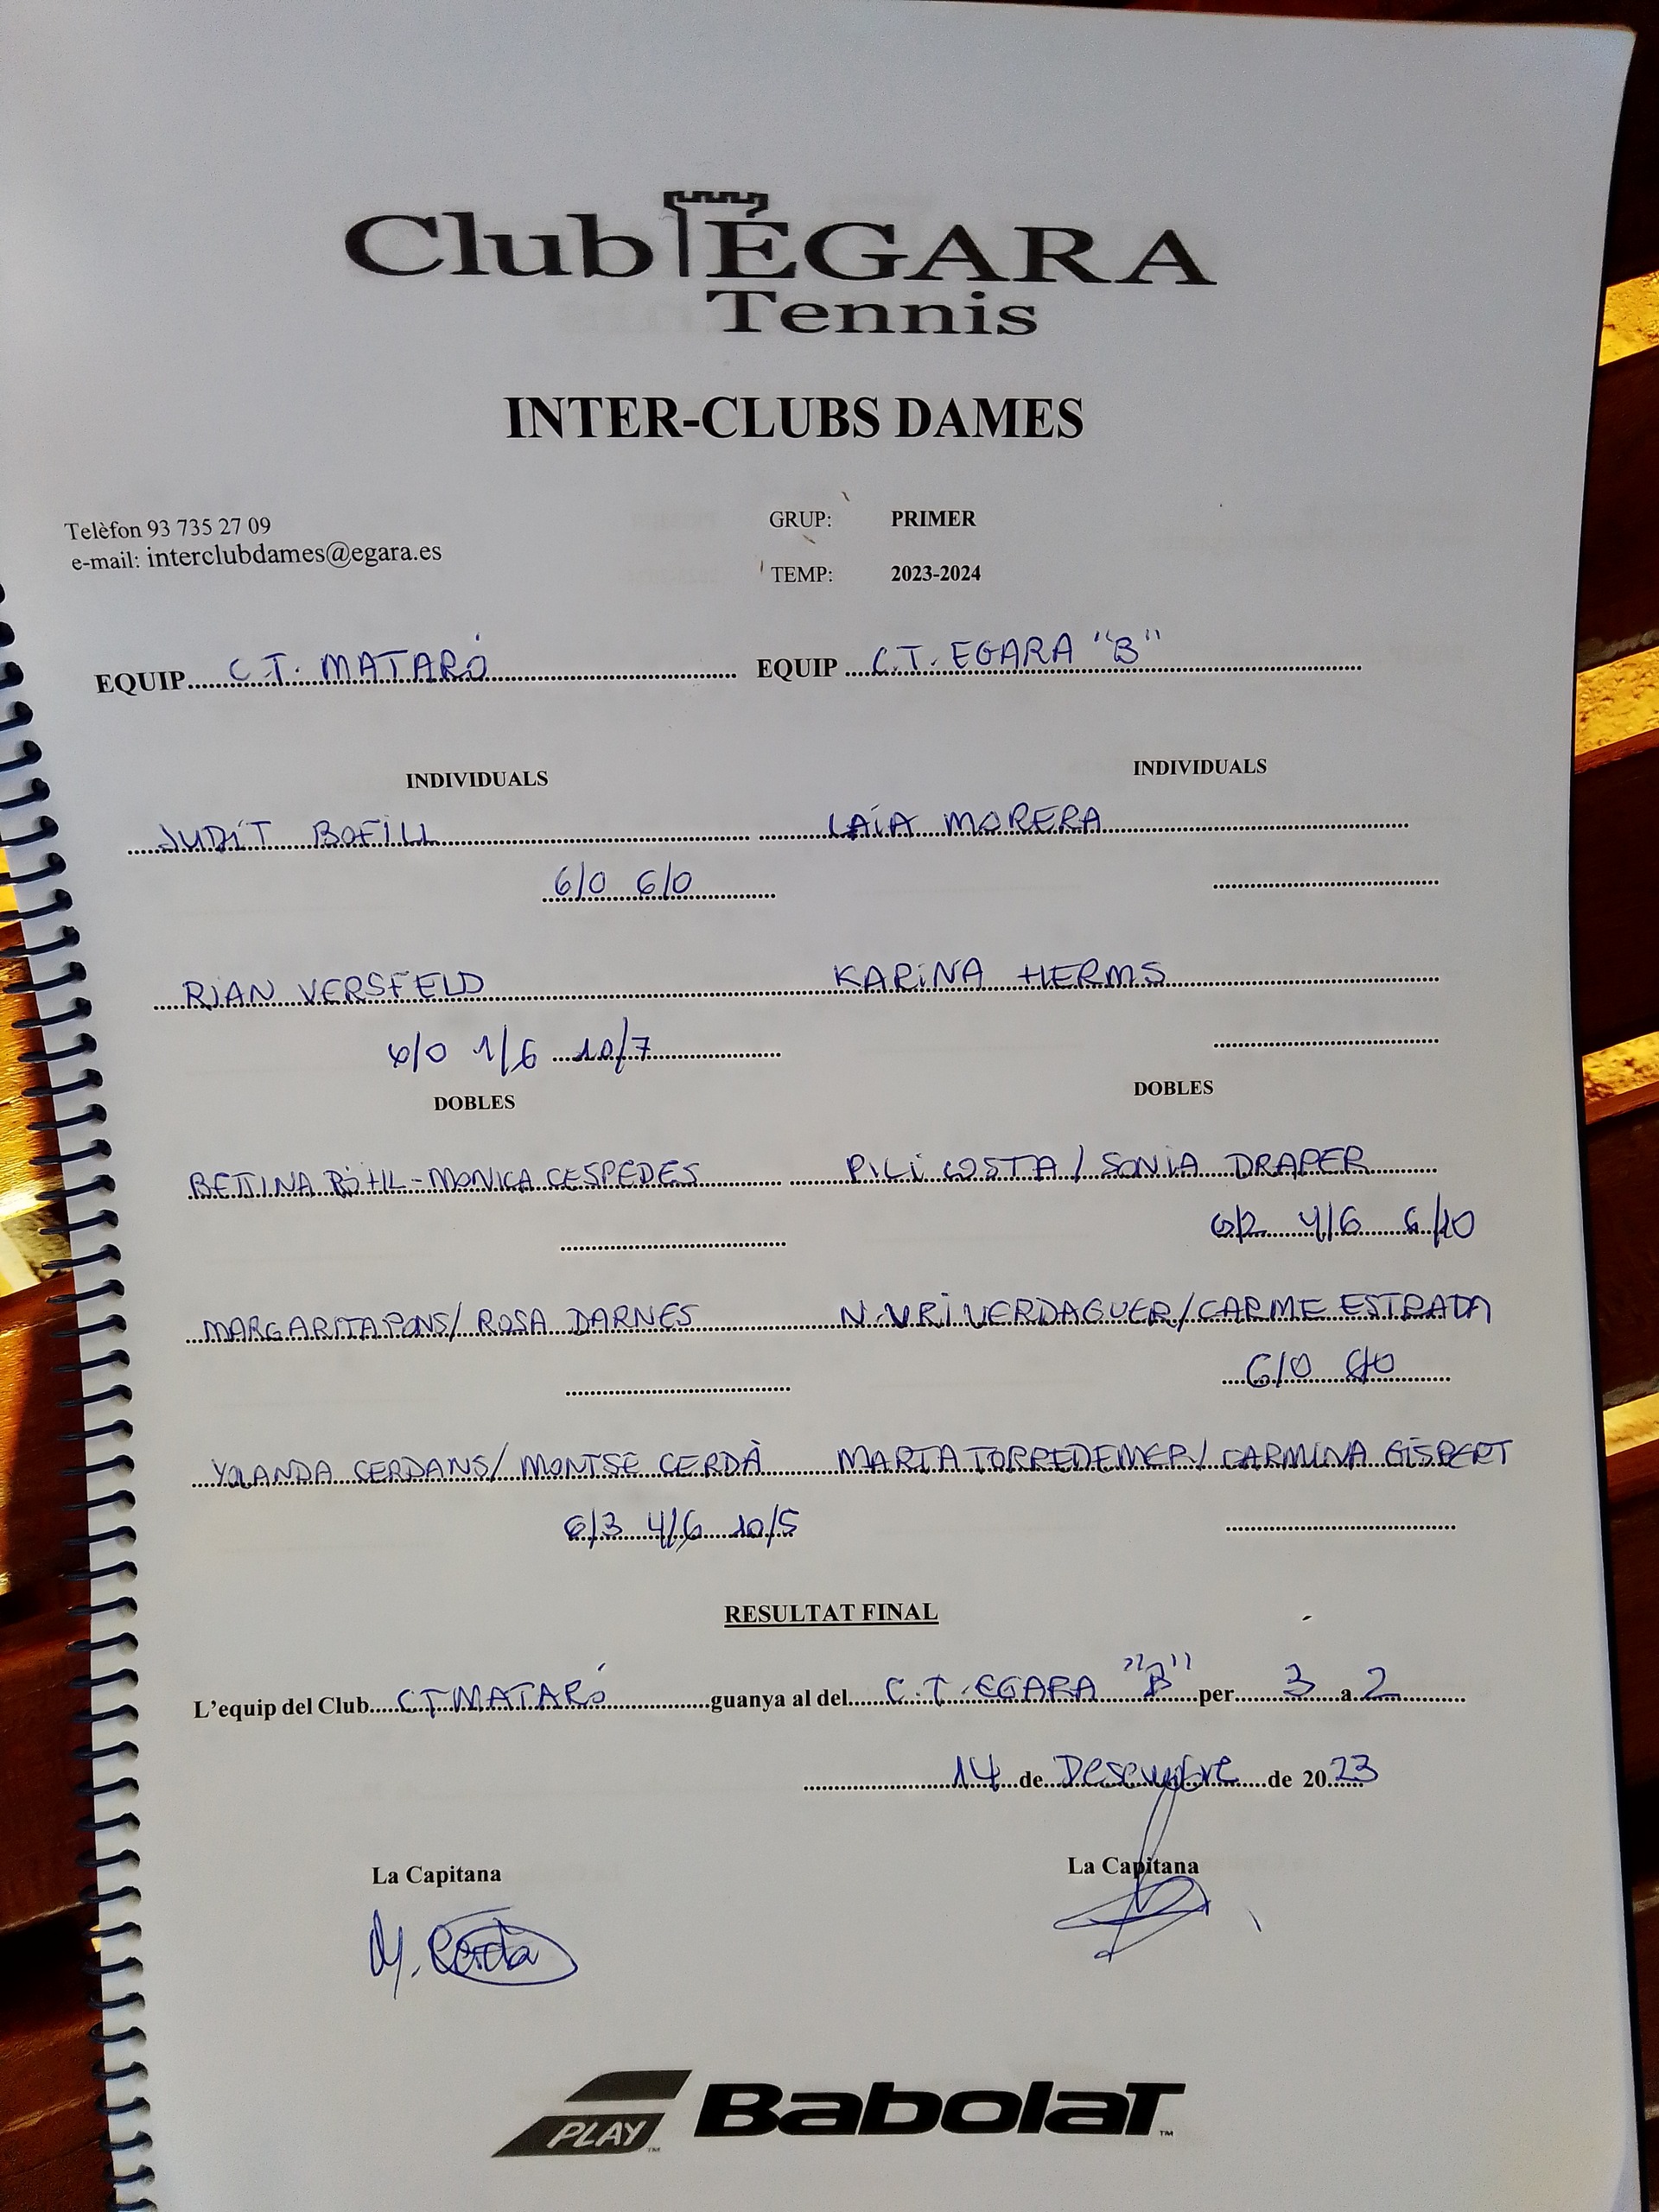 Club EGARA
Tennis
INTER-CLUBS DAMES
Telèfon 93 735 27 09
e-mail: interclubdames@egara.es
GRUP: PRIMER
TEMP: 2023-2024
EQUIP C.T. MATARÓ EQUIP C.T. EGARA "B"
INDIVIDUALS INDIVIDUALS
JUDIT BOFILL LAIA MORERA
6/0 6/0
RIAN VERSFELD KARINA HERMS
6/0 1/6 10/7
DOBLES DOBLES
BETTINA RÖHL - MONICA CESPEDES PILI COSTA / SONIA DRAPER
6/2 4/6 6/10
MARGARITA PONS / ROSA DARNES NURI VERDAGUER / CARME ESTRADA
6/0 6/0
YOLANDA CERDANS / MONTSE CERDÀ MARTA TORREDEMER / CARMINA GISPERT
6/3 4/6 10/5
RESULTAT FINAL
L'equip del Club C.T MATARÓ guanya al del C.T. EGARA "B" per 3 a 2
14 de Desembre de 2023
La Capitana La Capitana
M. Cerdà
PLAY BabolaT